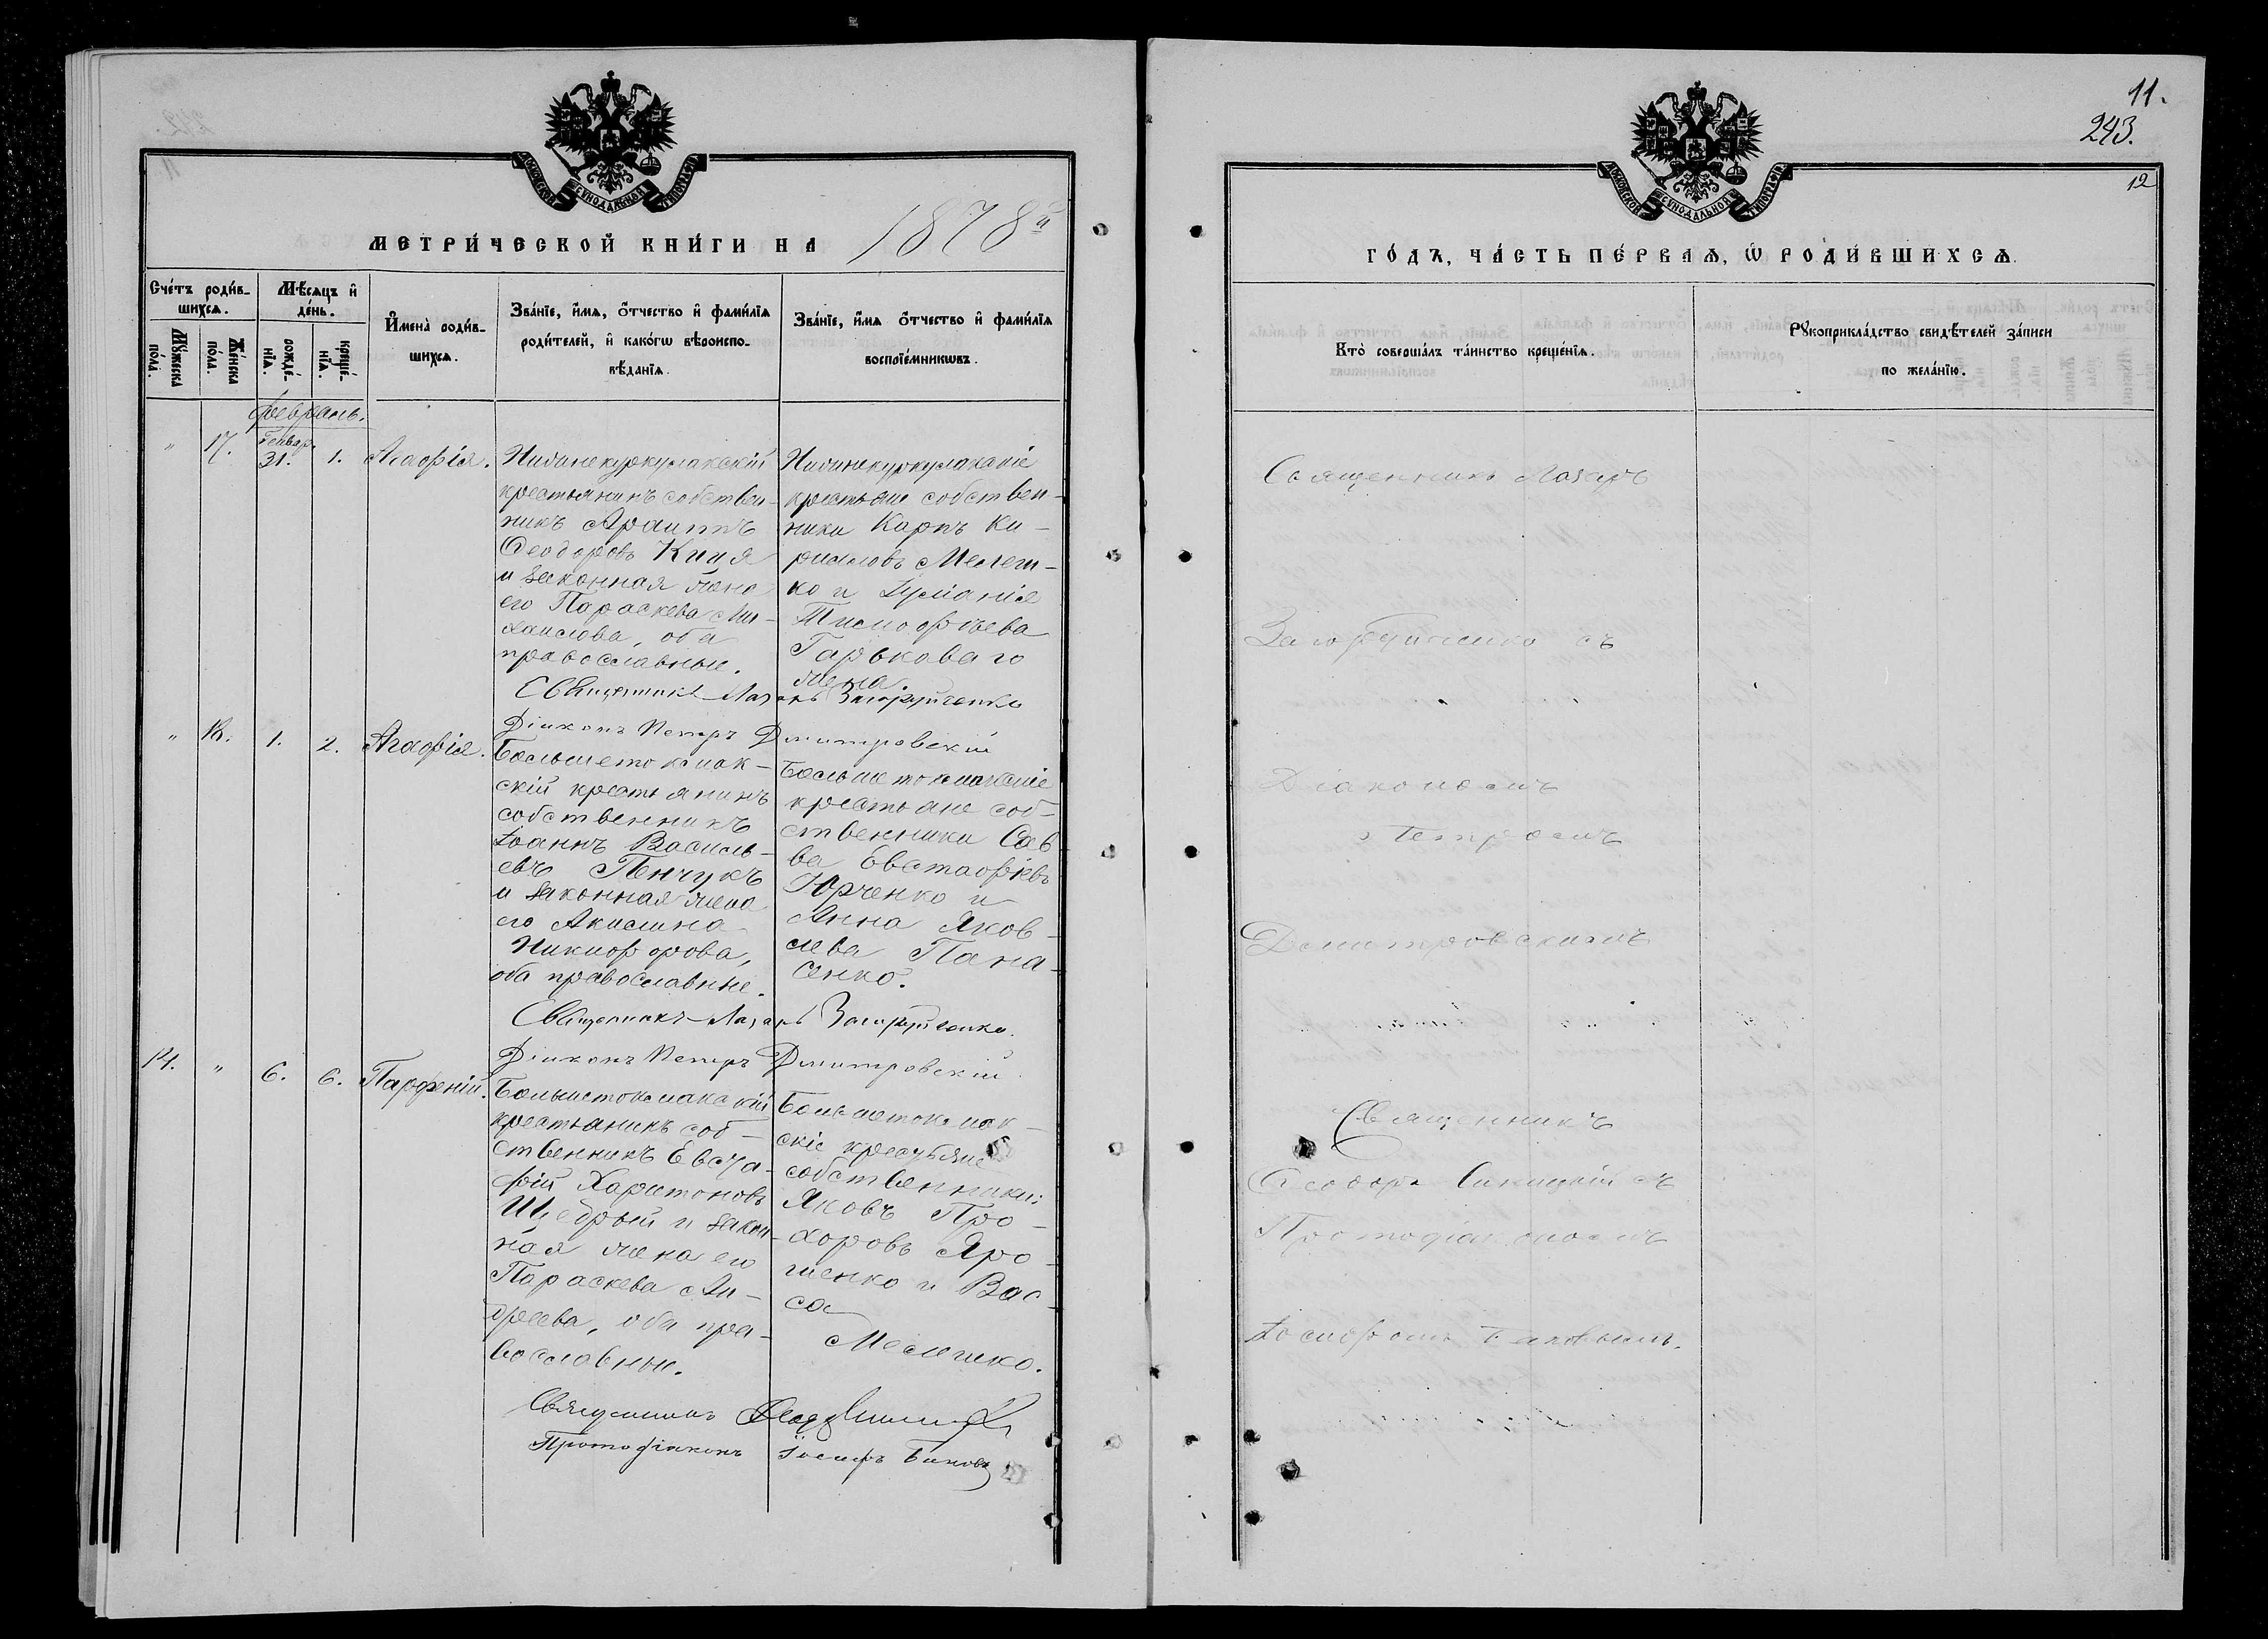 МОСКОВСКОЙ СѴНОДАЛЬНОЙ ТИПОГРАФІИ
МЕТРИ́ЧЕСКОЙ КНИ́ГИ НА 1878й
Сче́тъ роди́в-
шихсѧ.
Мѣ́сѧцъ и҆
де́нь.
Мꙋ́жеска
по́ла.
Же́нска
по́ла.
рожде́-
нїѧ.
креще́-
нїѧ.
И҆мена̀ роди́в-
шихсѧ.
Зва́нїе, и҆́мѧ, ѻ҆́тчество и҆ фами́лїѧ
роди́телей, и҆ како́гѡ вѣроиспо-
вѣ́данїѧ.
Зва́нїе, и҆́мѧ ѻ҆́тчество и҆ фами́лїѧ
воспрїе́мникѡвъ.
Февраль.
"
17.
Генвар.
31.
1.
Агафія.
крестьянинъ собствен-
никъ
Ѳеодоровъ Киця
и законная жена
его Параскева Ми-
хаилова, оба
православные.
крестьяне собствен-
ники Карпъ Ки-
рилловъ Мелеш-
ко и Іуліанія
Тимофѣева
Гарьковаго
жена.
Священникъ Лазарь Загорульченко
Діаконъ Петръ Дмитровскій
"
18.
1.
2.
Агафія.
Большетокмак-
скій крестьянинъ
собственникъ
Іоаннъ Василь-
евъ Пенчукъ
и законная жена
его Акилина
Никифорова,
оба православные.
Большетокмакскіе
крестьяне соб-
ственники Сав-
ва Евстафіевъ
Юрченко и
Анна Яков-
лева Пана-
сенко.
Священникъ Лазарь Загорульченко.
Діаконъ Петръ Дмитровскій
14.
"
6.
6.
Парфеній.
Большетокмакскій
крестьянинъ соб-
ственникъ Евста-
фій Харитоновъ
Щедрый и закон-
ная жена его
Параскева Ан-
дреева, оба пра-
вославные.
Большетокмак-
скіе крестьяне
собственники:
Яковъ Про-
хоровъ Яро-
шенко и Вас-
са
Мелешко.
Священникъ
Протодіаконъ Іосифъ Баковъ
11.
243.
12
МОСКОВСКОЙ СѴНОДАЛЬНОЙ ТИПОГРАФІИ
ГО́ДЪ, ЧА́СТЬ ПЕ́РВАѦ, Ѡ҆ РОДИ́ВШИХСѦ.
Кто̀ соверша́лъ та́инство креще́нїѧ.
Рꙋкоприкла́дство свидѣ́телей за́писи
по жела́нїю.
Священникъ Лазарь
Загорульченко съ
Діакономъ
Петромъ
Дмитровскимъ
Священникъ
Ѳеодоръ Синицкій съ
Протодіакономъ
Іосифомъ Баковымъ.